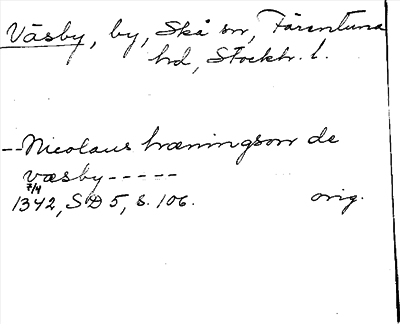 Väsby, by, Skå sn, Färentuna
hd, Stockh. l.
--Nicolaus hræningson de
væsby-----
7/4
1342, SD 5, s. 106. orig.